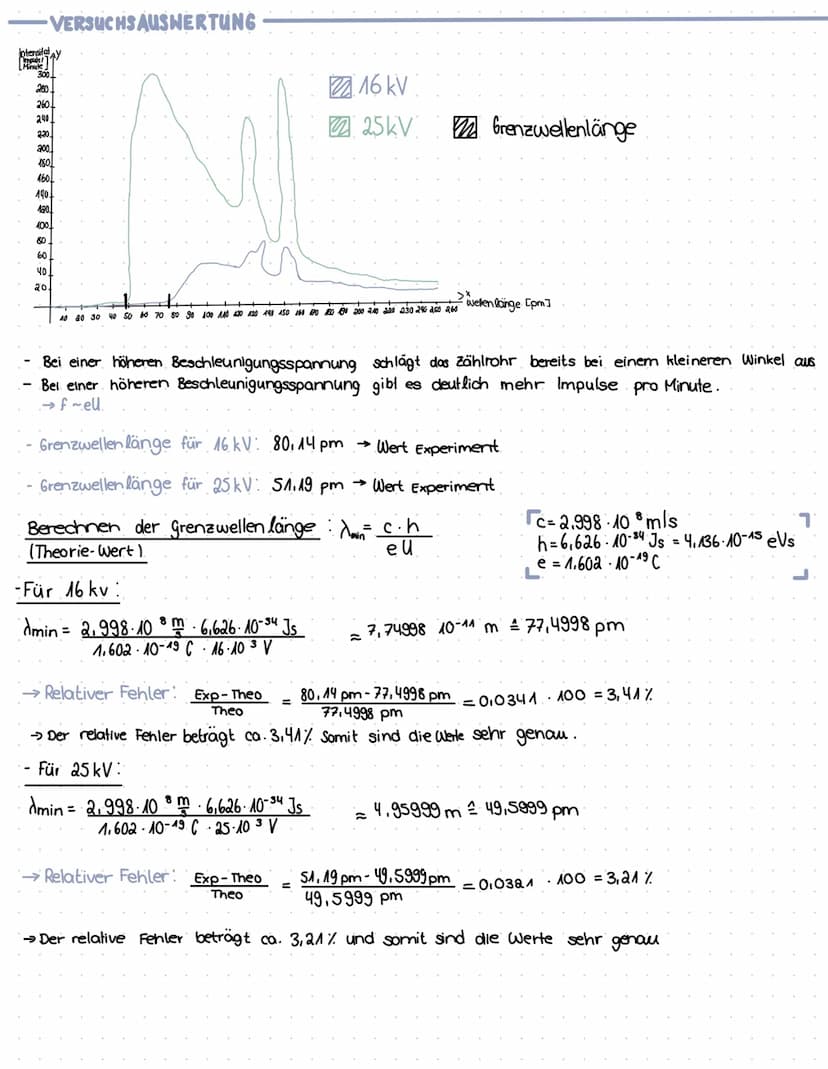 VERSUCHSAUSWERTUNG
Intensität
[Impuls/Minute]
y
300
280
260
240
220
200
180
160
140
120
100
80
60
40
20
16 kV
25kV
Grenzwellenlänge
x
Wellenlänge [pm]
10 20 30 40 50 60 70 80 90 100 110 120 130 140 150 160 170 180 190 200 210 220 230 240 250 260
- Bei einer höheren Beschleunigungsspannung schlägt das Zählrohr bereits bei einem kleineren Winkel aus
- Bei einer höheren Beschleunigungsspannung gibt es deutlich mehr Impulse pro Minute.
→ f ~ eU
- Grenzwellenlänge für 16 kV: 80,14 pm → Wert Experiment
- Grenzwellenlänge für 25 kV: 51,19 pm → Wert Experiment
Berechnen der Grenzwellenlänge : λmin = c · h / eU
(Theorie-Wert)
c = 2,998 · 10^8 m/s
h = 6,626 · 10^-34 Js = 4,136 · 10^-15 eVs
e = 1,602 · 10^-19 C
- Für 16 kv :
λmin = 2,998 · 10^8 m/s · 6,626 · 10^-34 Js / 1,602 · 10^-19 C · 16 · 10^3 V ≈ 7,74998 10^-11 m ≙ 77,4998 pm
→ Relativer Fehler: Exp - Theo / Theo = 80,14 pm - 77,4998 pm / 77,4998 pm = 0,0341 · 100 = 3,41 %
→ Der relative Fehler beträgt ca. 3,41% Somit sind die Werte sehr genau.
- Für 25 kV :
λmin = 2,998 · 10^8 m/s · 6,626 · 10^-34 Js / 1,602 · 10^-19 C · 25 · 10^3 V ≈ 4,95999 m ≙ 49,5999 pm
→ Relativer Fehler: Exp - Theo / Theo = 51,19 pm - 49,5999 pm / 49,5999 pm = 0,0321 · 100 = 3,21 %
→ Der relative Fehler beträgt ca. 3,21 % und somit sind die Werte sehr genau